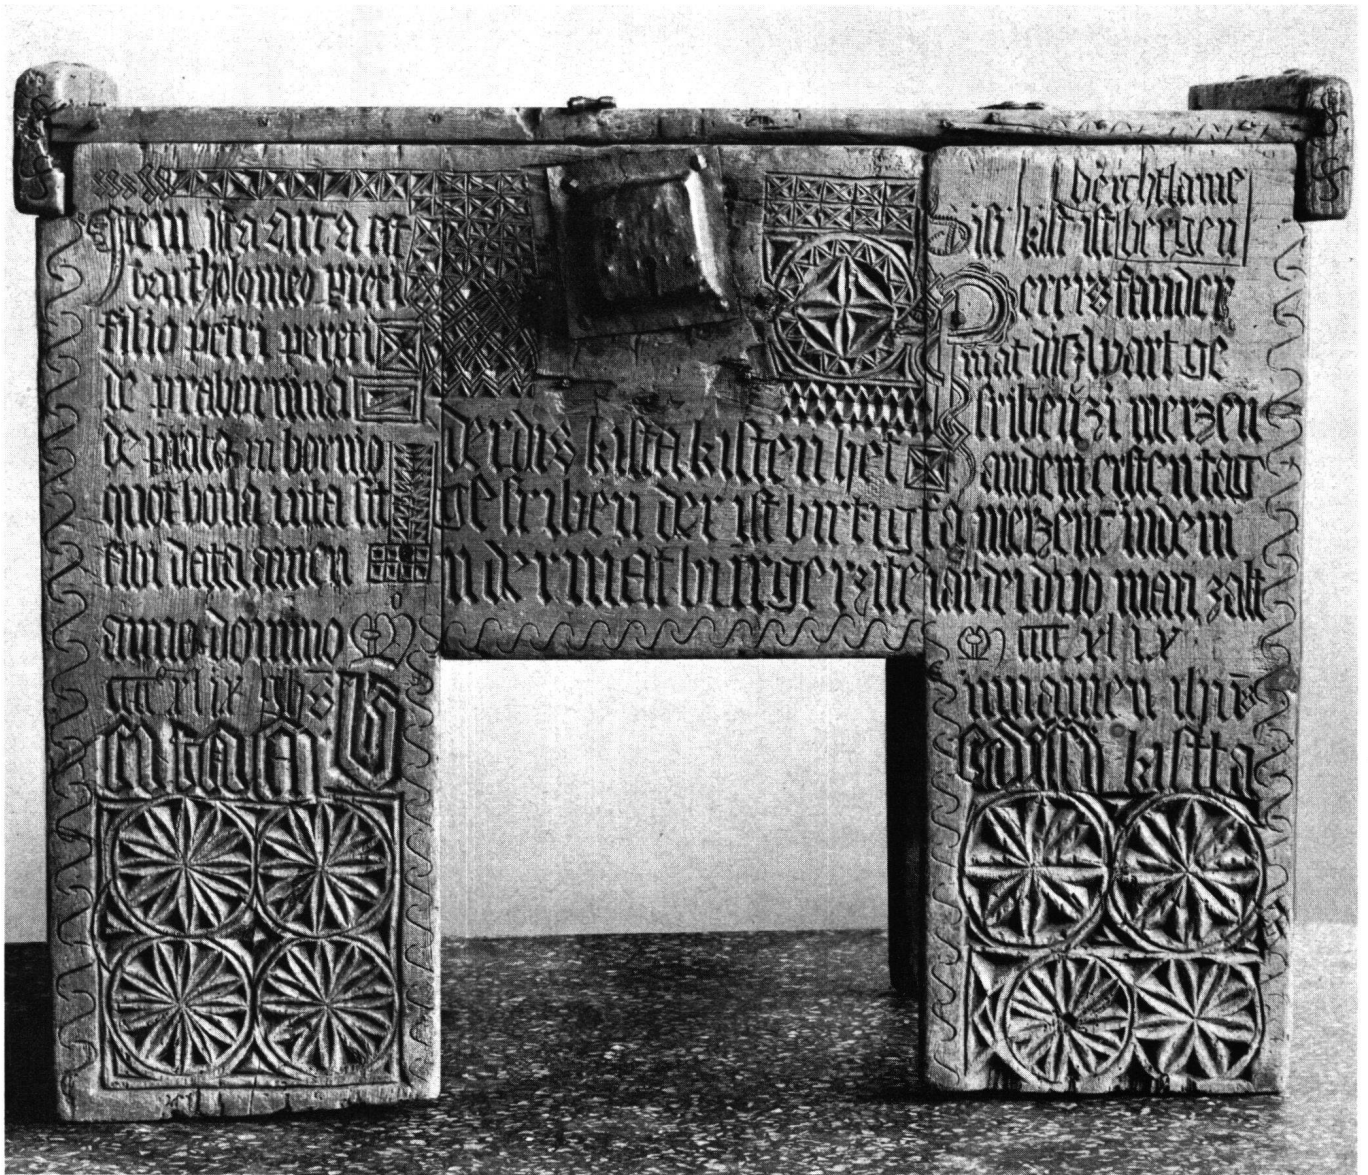 Item ista arca est
bartholomeo preti
filio petri pereti
de prabornina
de prata in bormio
quot bona uita sit
sibi data amen
anno domino M
cccc xl ix ihs
maria
der dis kista kisten het
geschriben der ist birtig fa
n der mat burger ze
berchtlame
Disi kist ist bergen
peretz fander
mat disz wart ge
friben zi merzen
an dem ersten tag
merzens in dem
iar dei duo man zalt
M cccc xl ix
in namen ihs
kistta